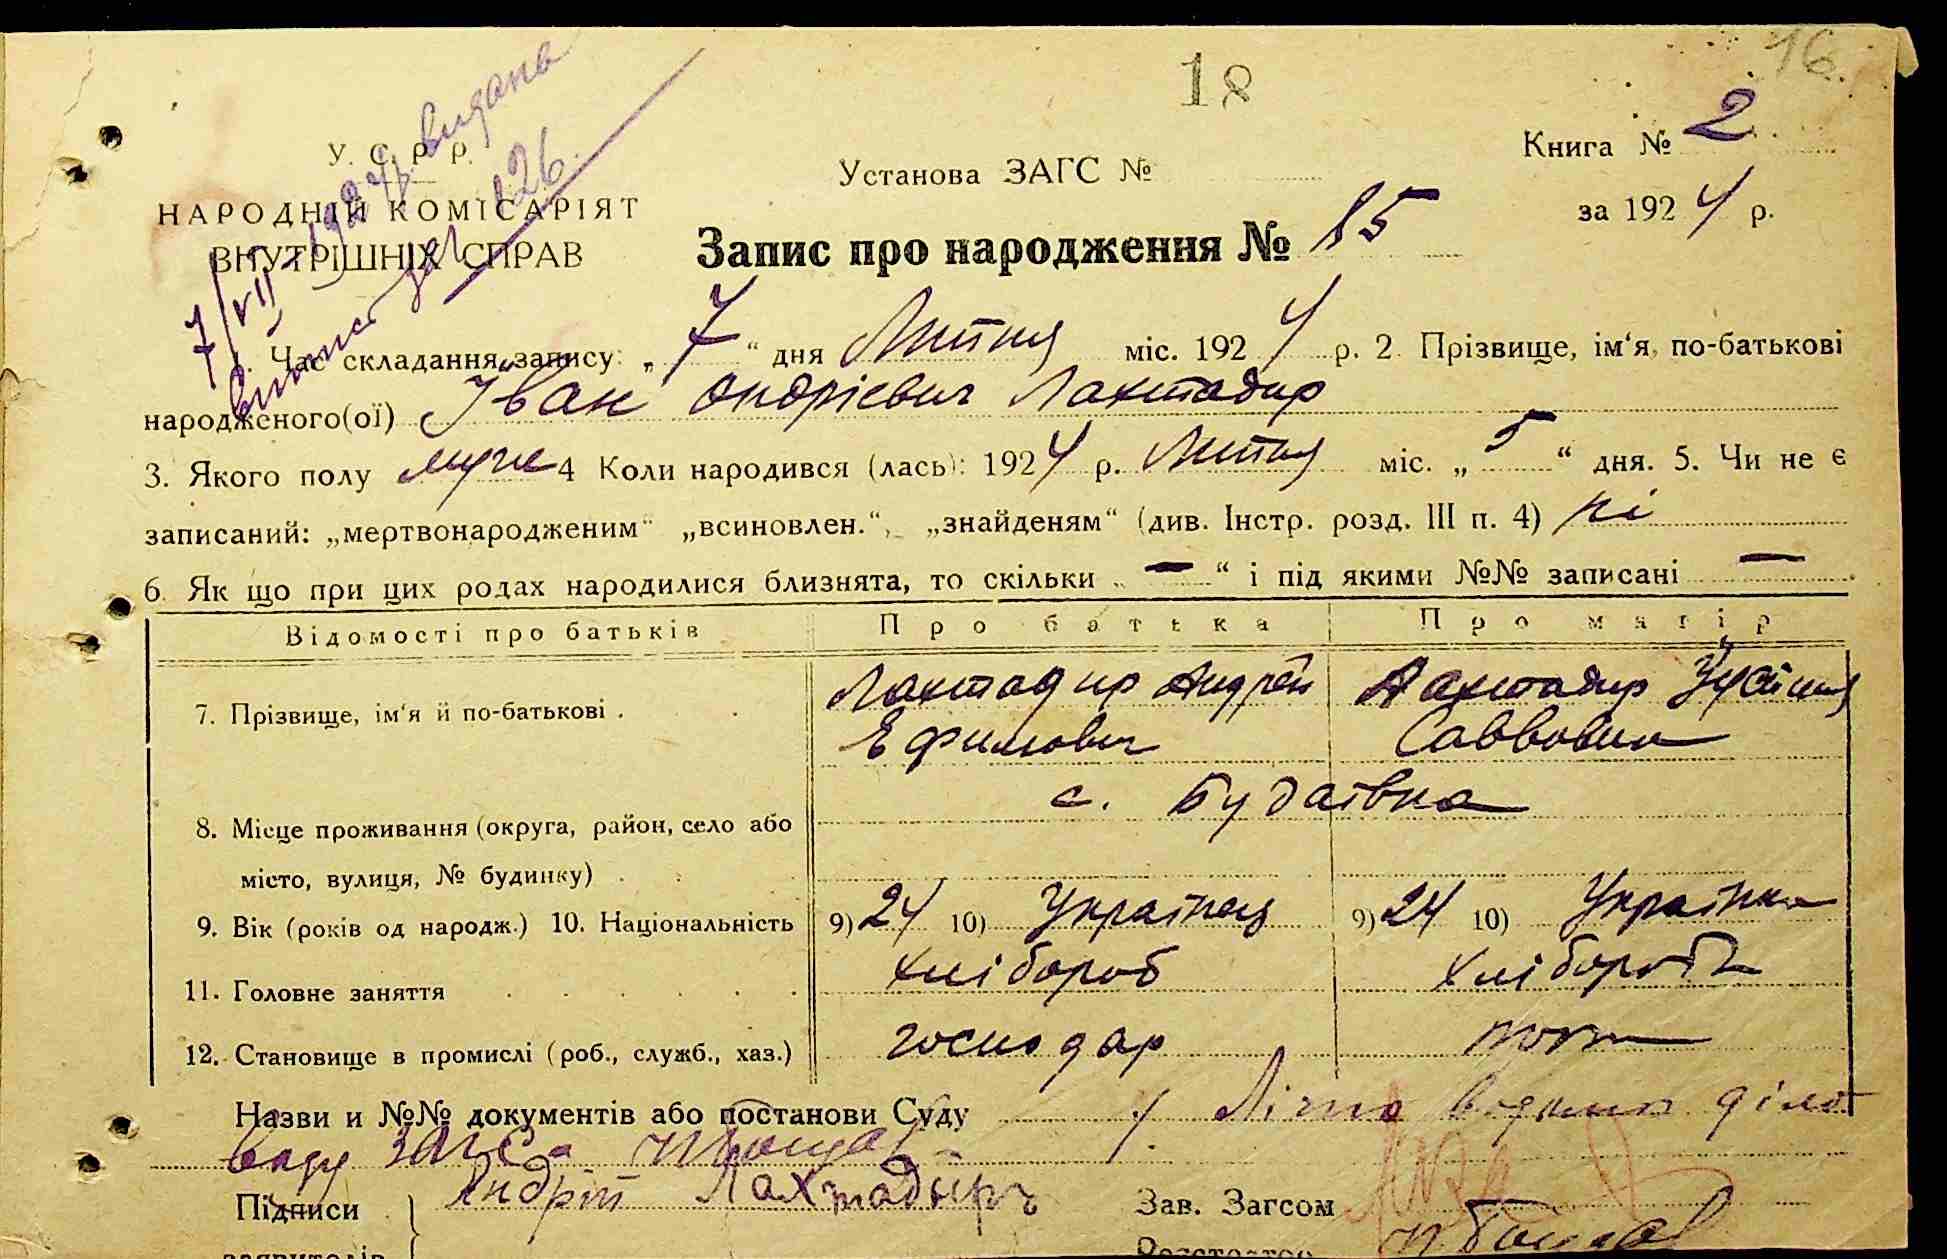 18
16.
У. С. Р. Р.
НАРОДНІЙ КОМІСАРІЯТ
ВНУТРІШНІХ СПРАВ
7/VII 1924 р. видана
виписка за № 126.
Установа ЗАГС №
Книга № 2
за 1924 р.
Запис про народження № 85
1. Час складання запису: „7“ дня Липня міс. 1924 р. 2. Прізвище, ім‘я, по-батькові
народженого(ої) Іван Андрієвич Лахтадир
3. Якого полу муж 4 Коли народився (лась): 1924 р. Липня міс. „5“ дня. 5. Чи не є
записаний: „мертвонародженим“ „всиновлен.“, „знайденям“ (див. Інстр. розд. III п. 4) ні
6. Як що при цих родах народилися близнята, то скільки „—“ і під якими №№ записані —
Відомості про батьків Про батька Про матір
7. Прізвище, ім‘я й по-батькові . Лахтадир Андрей Лахтадир
Ефимович Саввовна
с. Будаївка
8. Місце проживання (округа, район, село або
місто, вулиця, № будинку)
9. Вік (років од народж.) 10. Національність 9) 24 10) Українец 9) 24 10) Українка
11. Головне заняття хлібороб хлібороб
12. Становище в промислі (роб., служб., хаз.) господар
Назви и №№ документів або постанови Суду Лічно
ЗАГС
Підписи Андрій Лахтадыръ Зав. Загсом
заявителів Реєстратор